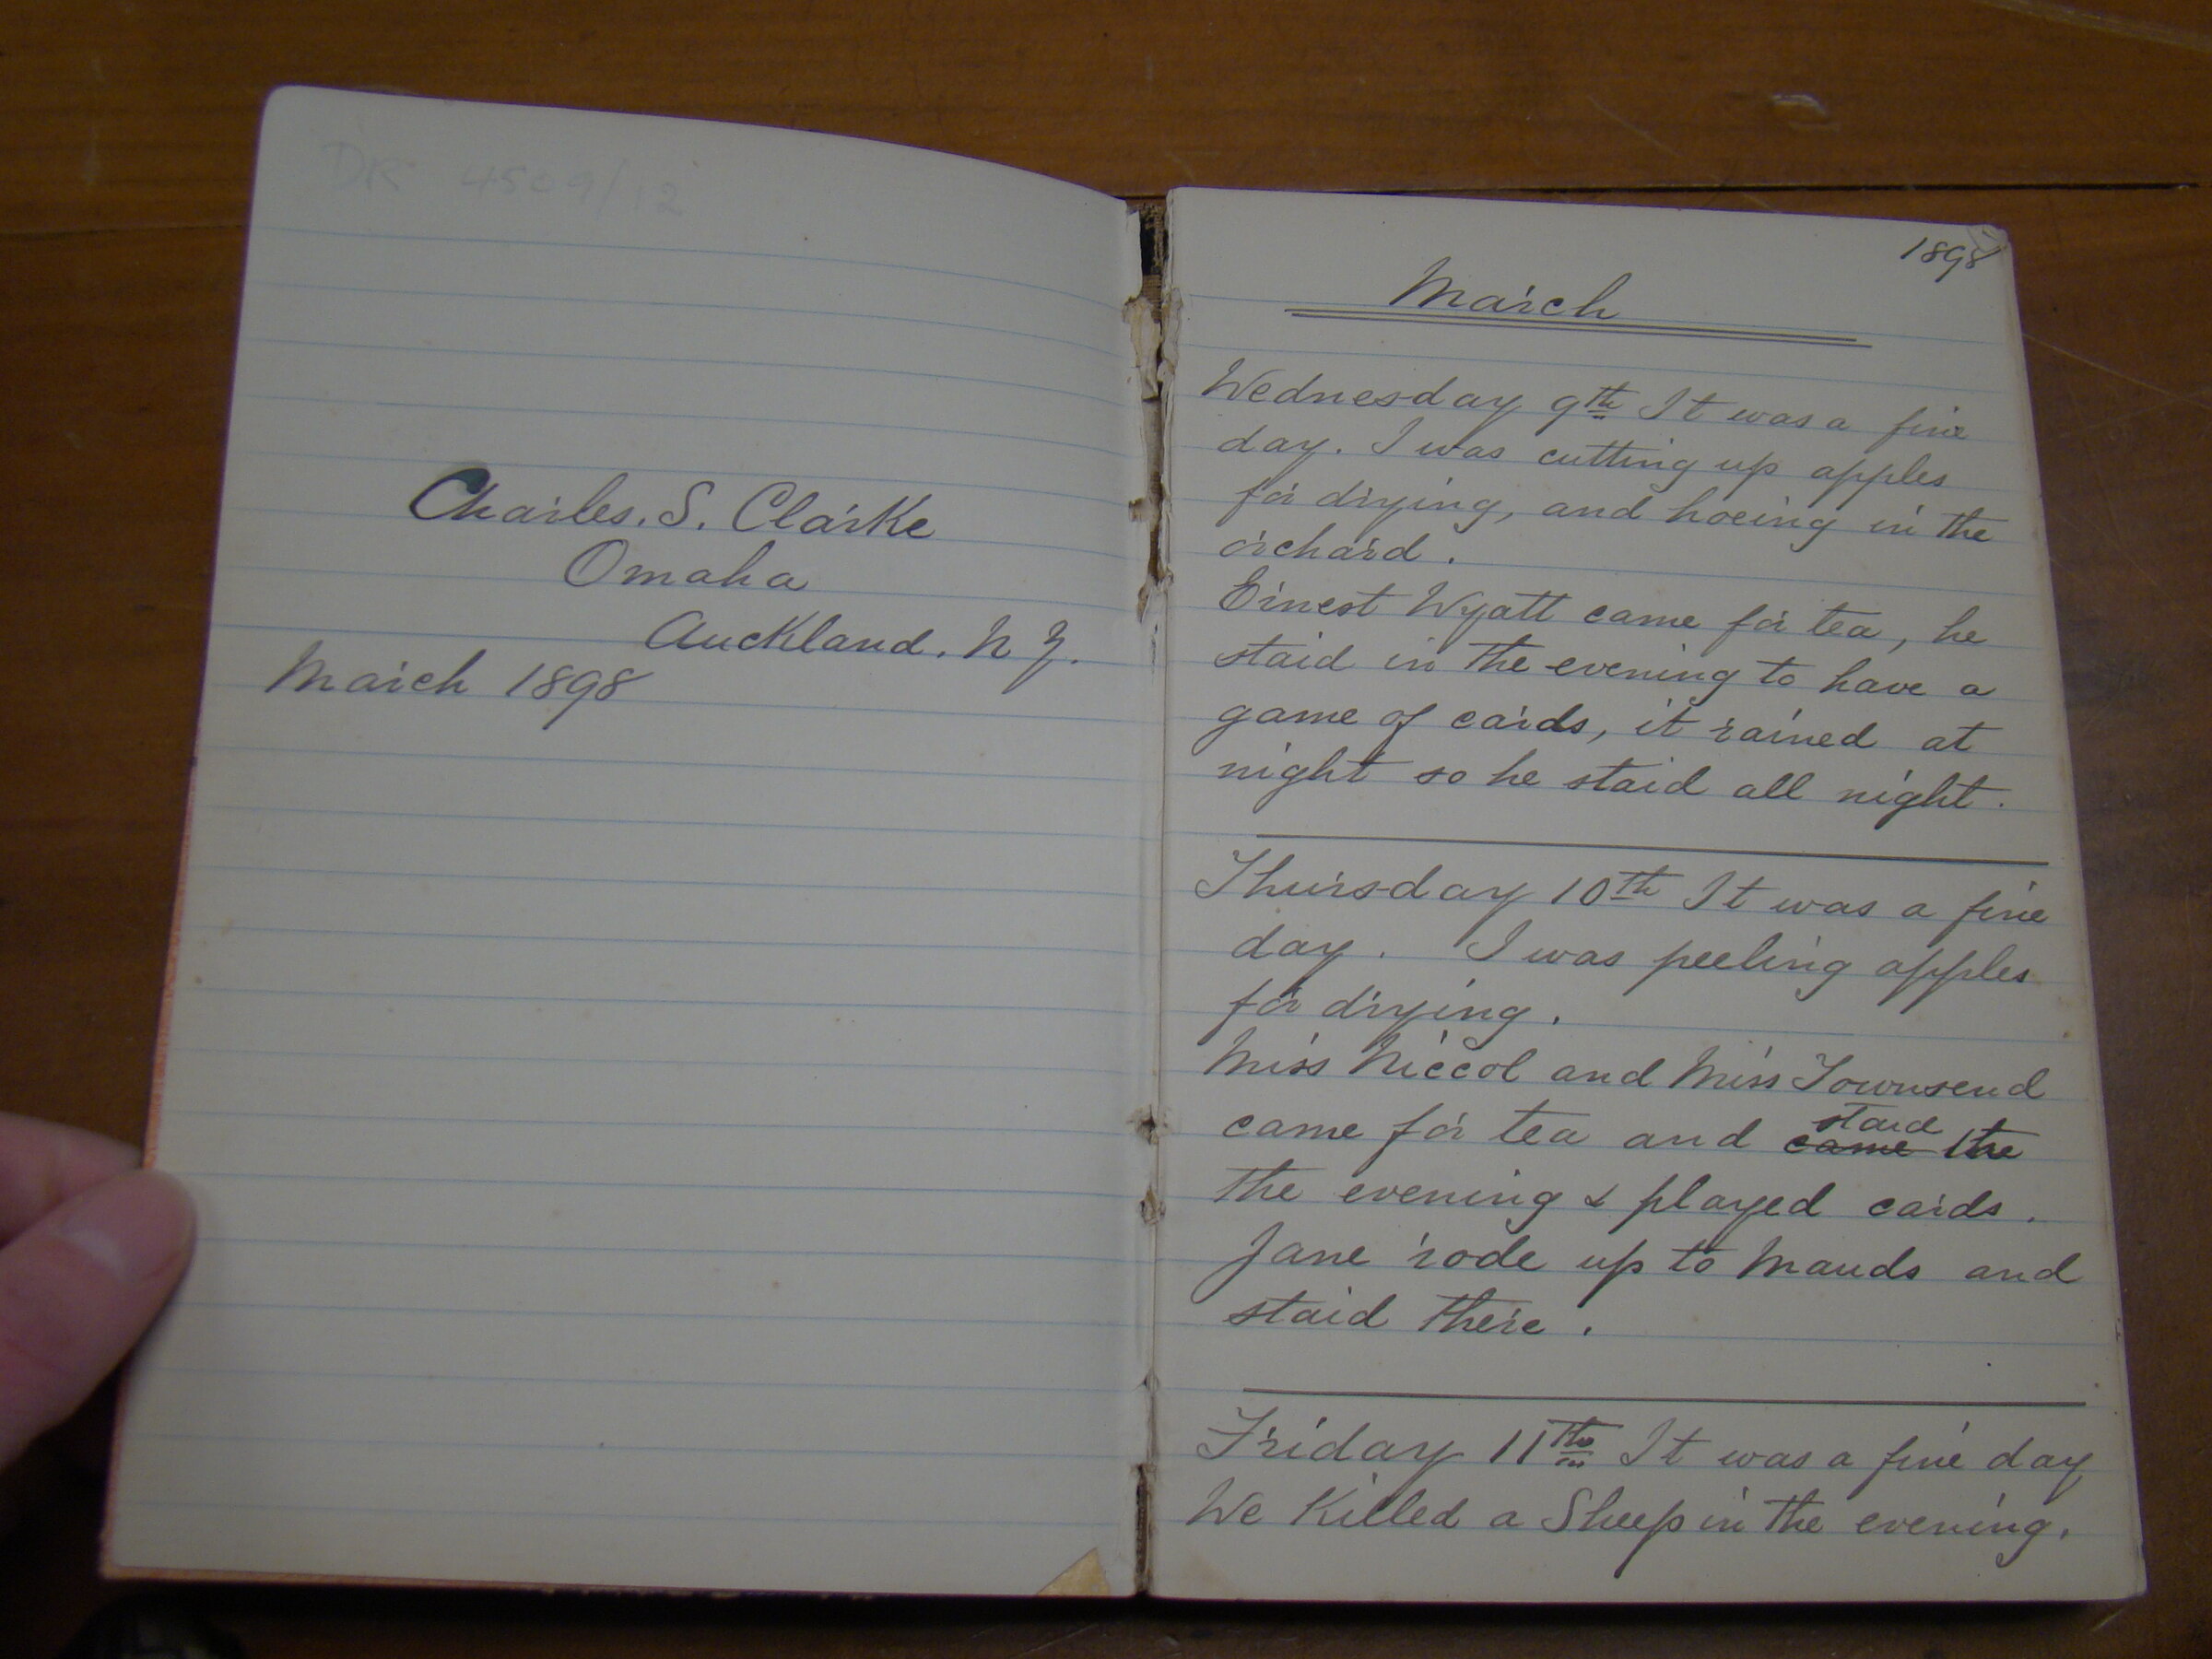 DR 4509/12
Charles. S. Clarke
Omaha
Auckland. N Z.
March 1898
1898
March
Wednesday 9th It was a fine
day. I was cutting up apples
for drying, and hoeing in the
orchard.
Ernest Wyatt came for tea, he
staid in the evening to have a
game of cards, it rained at
night so he staid all night.
Thursday 10th It was a fine
day. I was peeling apples
for drying.
Miss Niccol and Miss Townsend
staid
came for tea and came the
the evening & played cards.
Jane rode up to Mauds and
staid there.
Friday 11th It was a fine day
We Killed a Sheep in the evening.